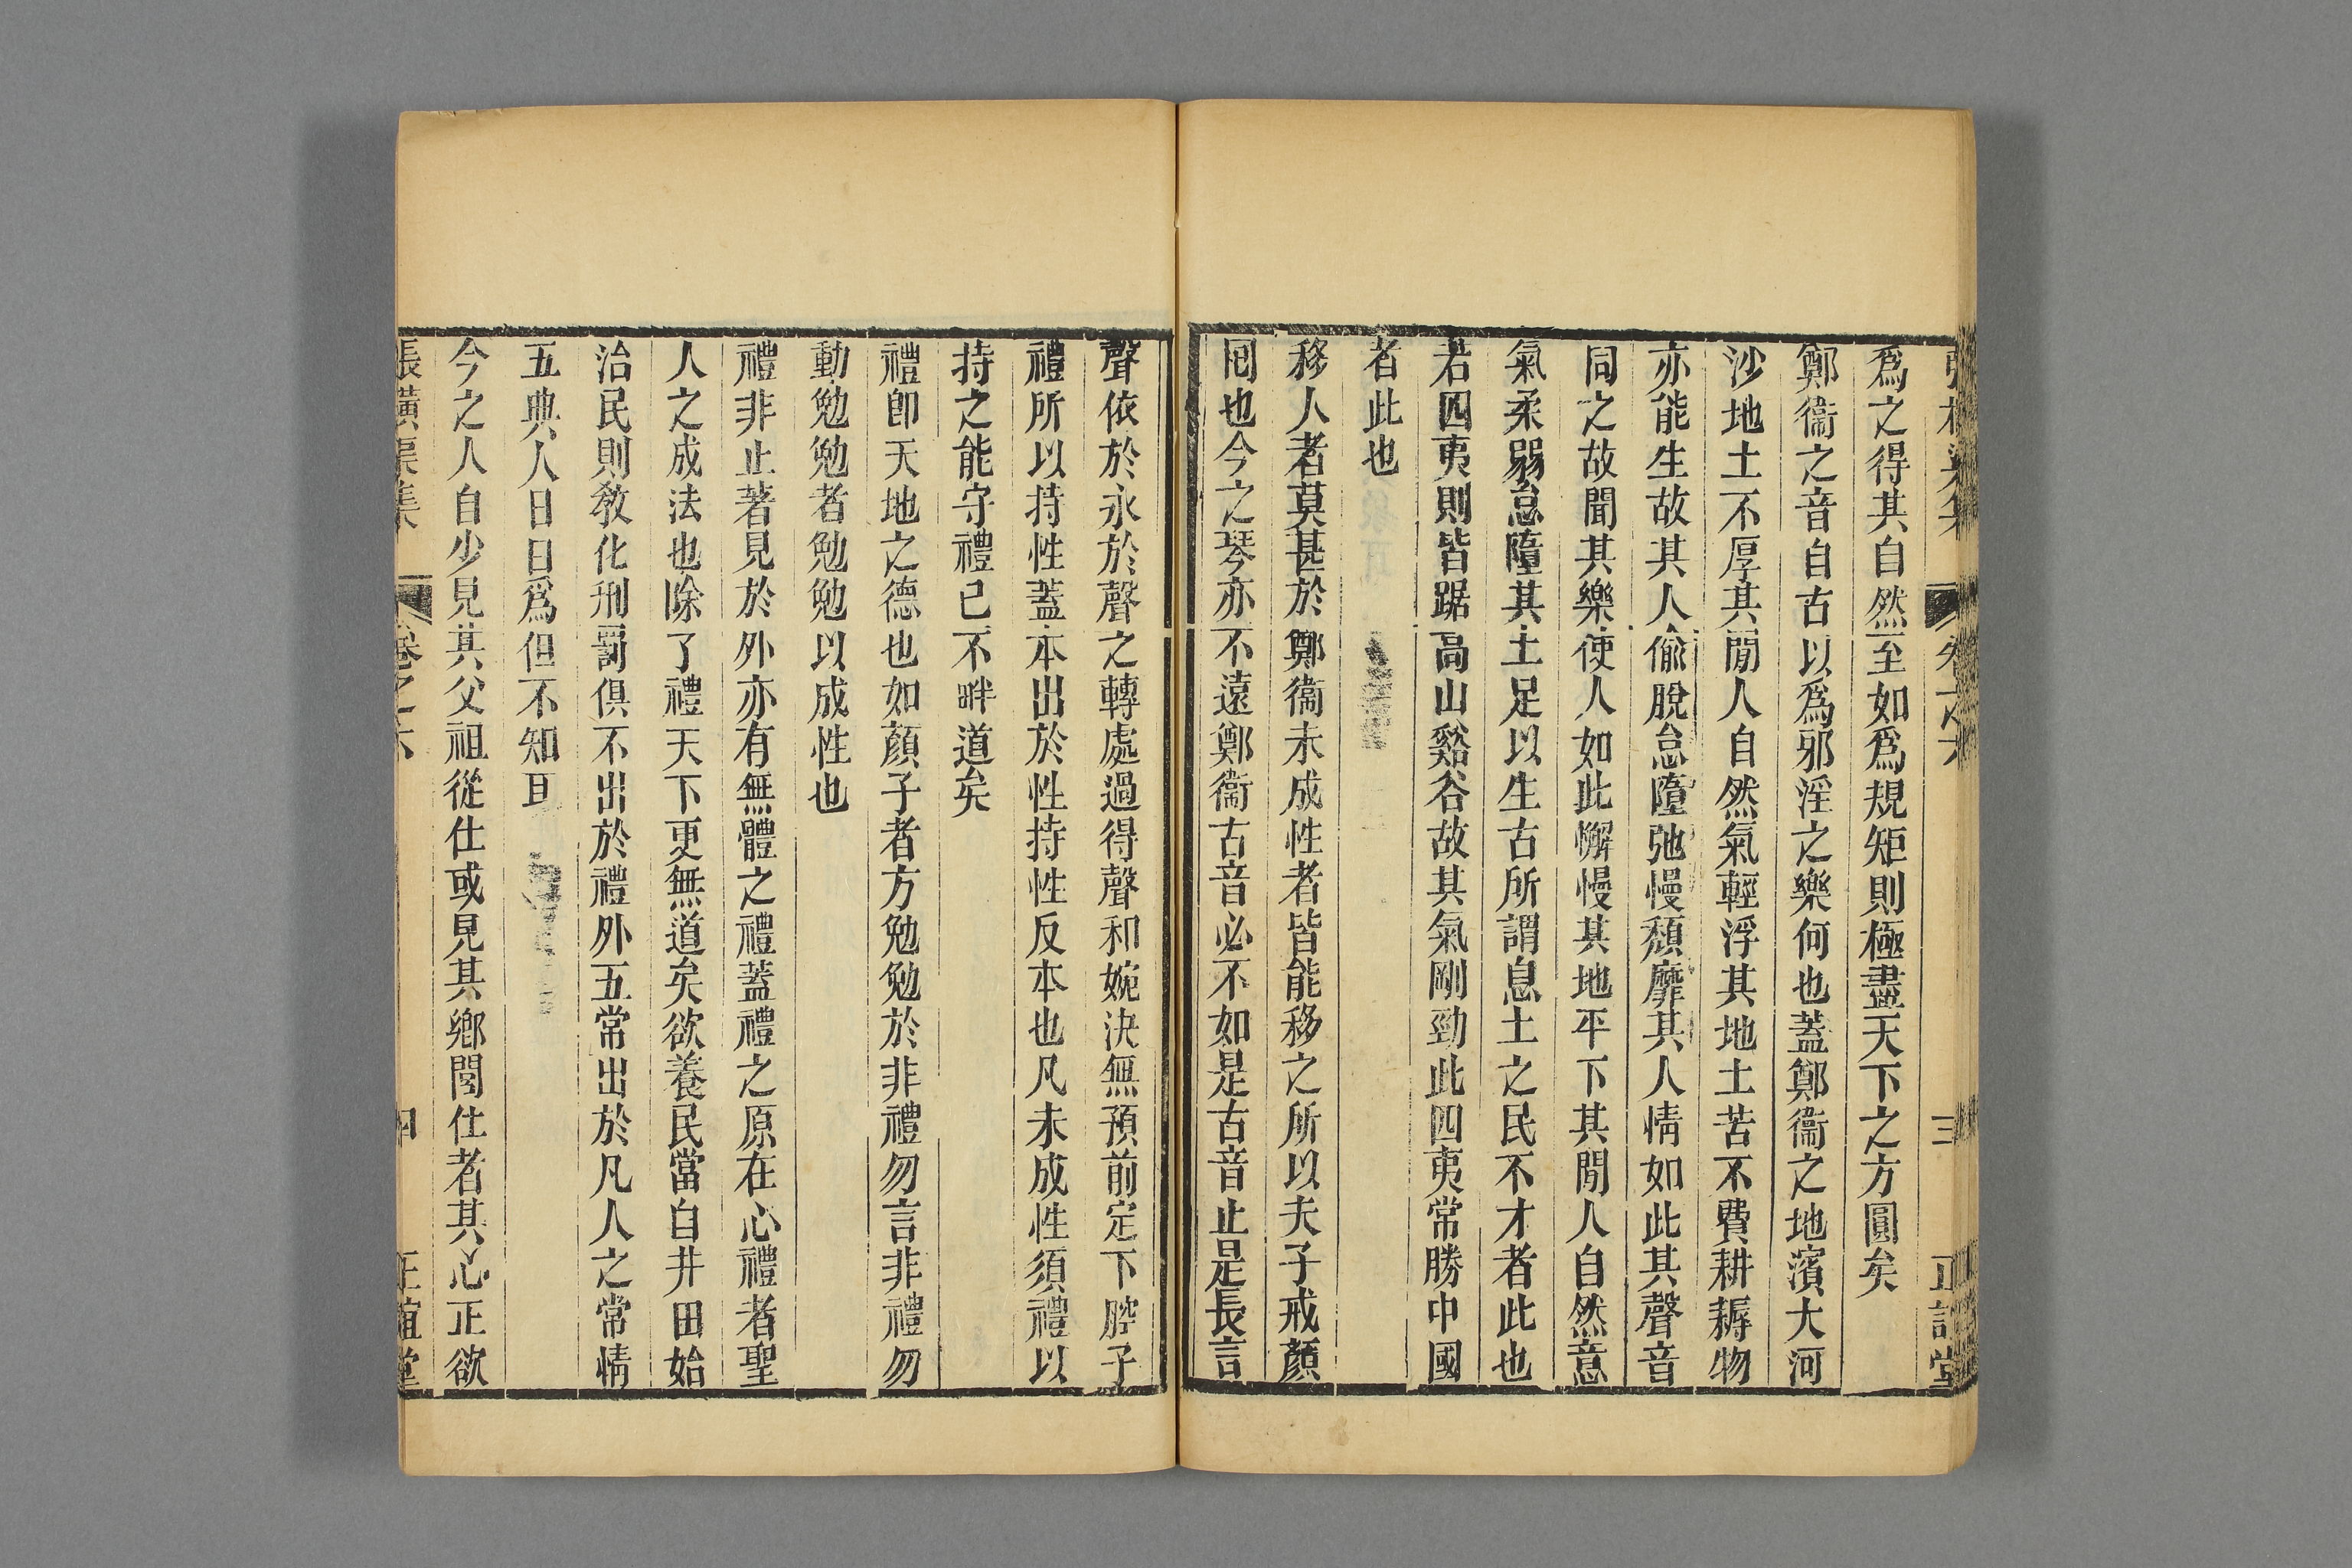 爲之得其自然至如爲規矩則極盡天下之方圓矣
鄭衞之音自古以爲邪淫之樂何也蓋鄭衞之地濱大河
沙地土不厚其閒人自然氣輕浮其地土苦不費耕耨物
亦能生故其人偷脫怠墮弛慢頹靡其人情如此其聲音
同之故聞其樂使人如此懈慢其地平下其閒人自然意
氣柔弱怠墮其土足以生古所謂息土之民不才者此也
若四夷則皆踞高山谿谷故其氣剛勁此四夷常勝中國
者此也
移人者莫甚於鄭衞未成性者皆能移之所以夫子戒顏
囘也今之琴亦不遠鄭衞古音必不如是古音止是長言
聲依於永於聲之轉處過得聲和婉決無預前定下腔子
禮所以持性蓋本出於性持性反本也凡未成性須禮以
持之能守禮已不畔道矣
禮卽天地之德也如顏子者方勉勉於非禮勿言非禮勿
動勉勉者勉勉以成性也
禮非止著見於外亦有無體之禮蓋禮之原在心禮者聖
人之成法也除了禮天下更無道矣欲養民當自井田始
治民則敎化刑罰俱不出於禮外五常出於凡人之常情
五典人日日爲但不知耳
今之人自少見其父祖從仕或見其鄉閭仕者其心正欲
張橫渠集 卷之六 四 正誼堂